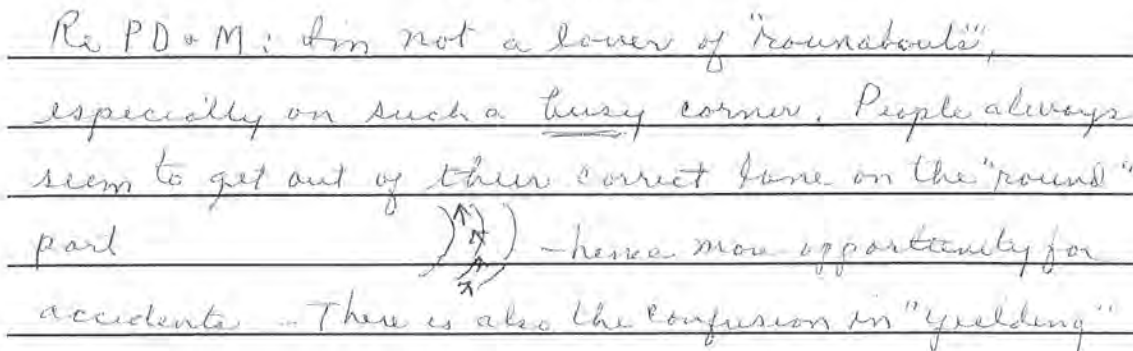 Re PD & M: I'm not a lover of "rounabouts",
especially on such a busy corner. People always
seem to get out of their correct lane on the "round"
part - hence more opportunity for
accidents - There is also the confusion in "yielding"